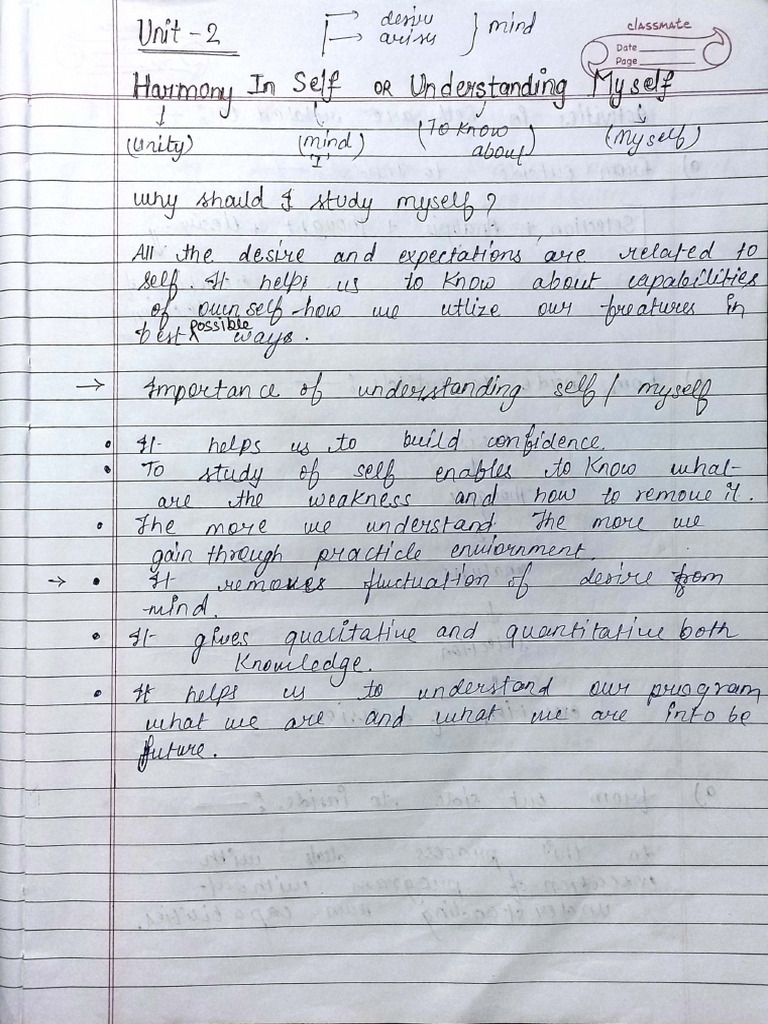 Unit - 2
→ desire
→ arises
} mind
classmate
Date
Page
Harmony In Self OR Understanding Myself
↓ ↓ ↓ ↓
(Unity) (mind) (To know about) (Myself)
'I'
Why should I study myself?
All the desire and expectations are related to
self. It helps us to know about capabilities
of ownself how we utlize our freatures in
best possible ways.
→ Importance of understanding self / myself
• It helps us to build confidence.
• To study of self enables to know what
are the weakness and how to remove it.
• The more we understand The more we
gain through practicle enviornment.
→ • It removes fluctuation of desire from
mind.
• It gives qualitative and quantitative both
Knowledge.
• It helps us to understand our program
what we are and what we are into be
future.